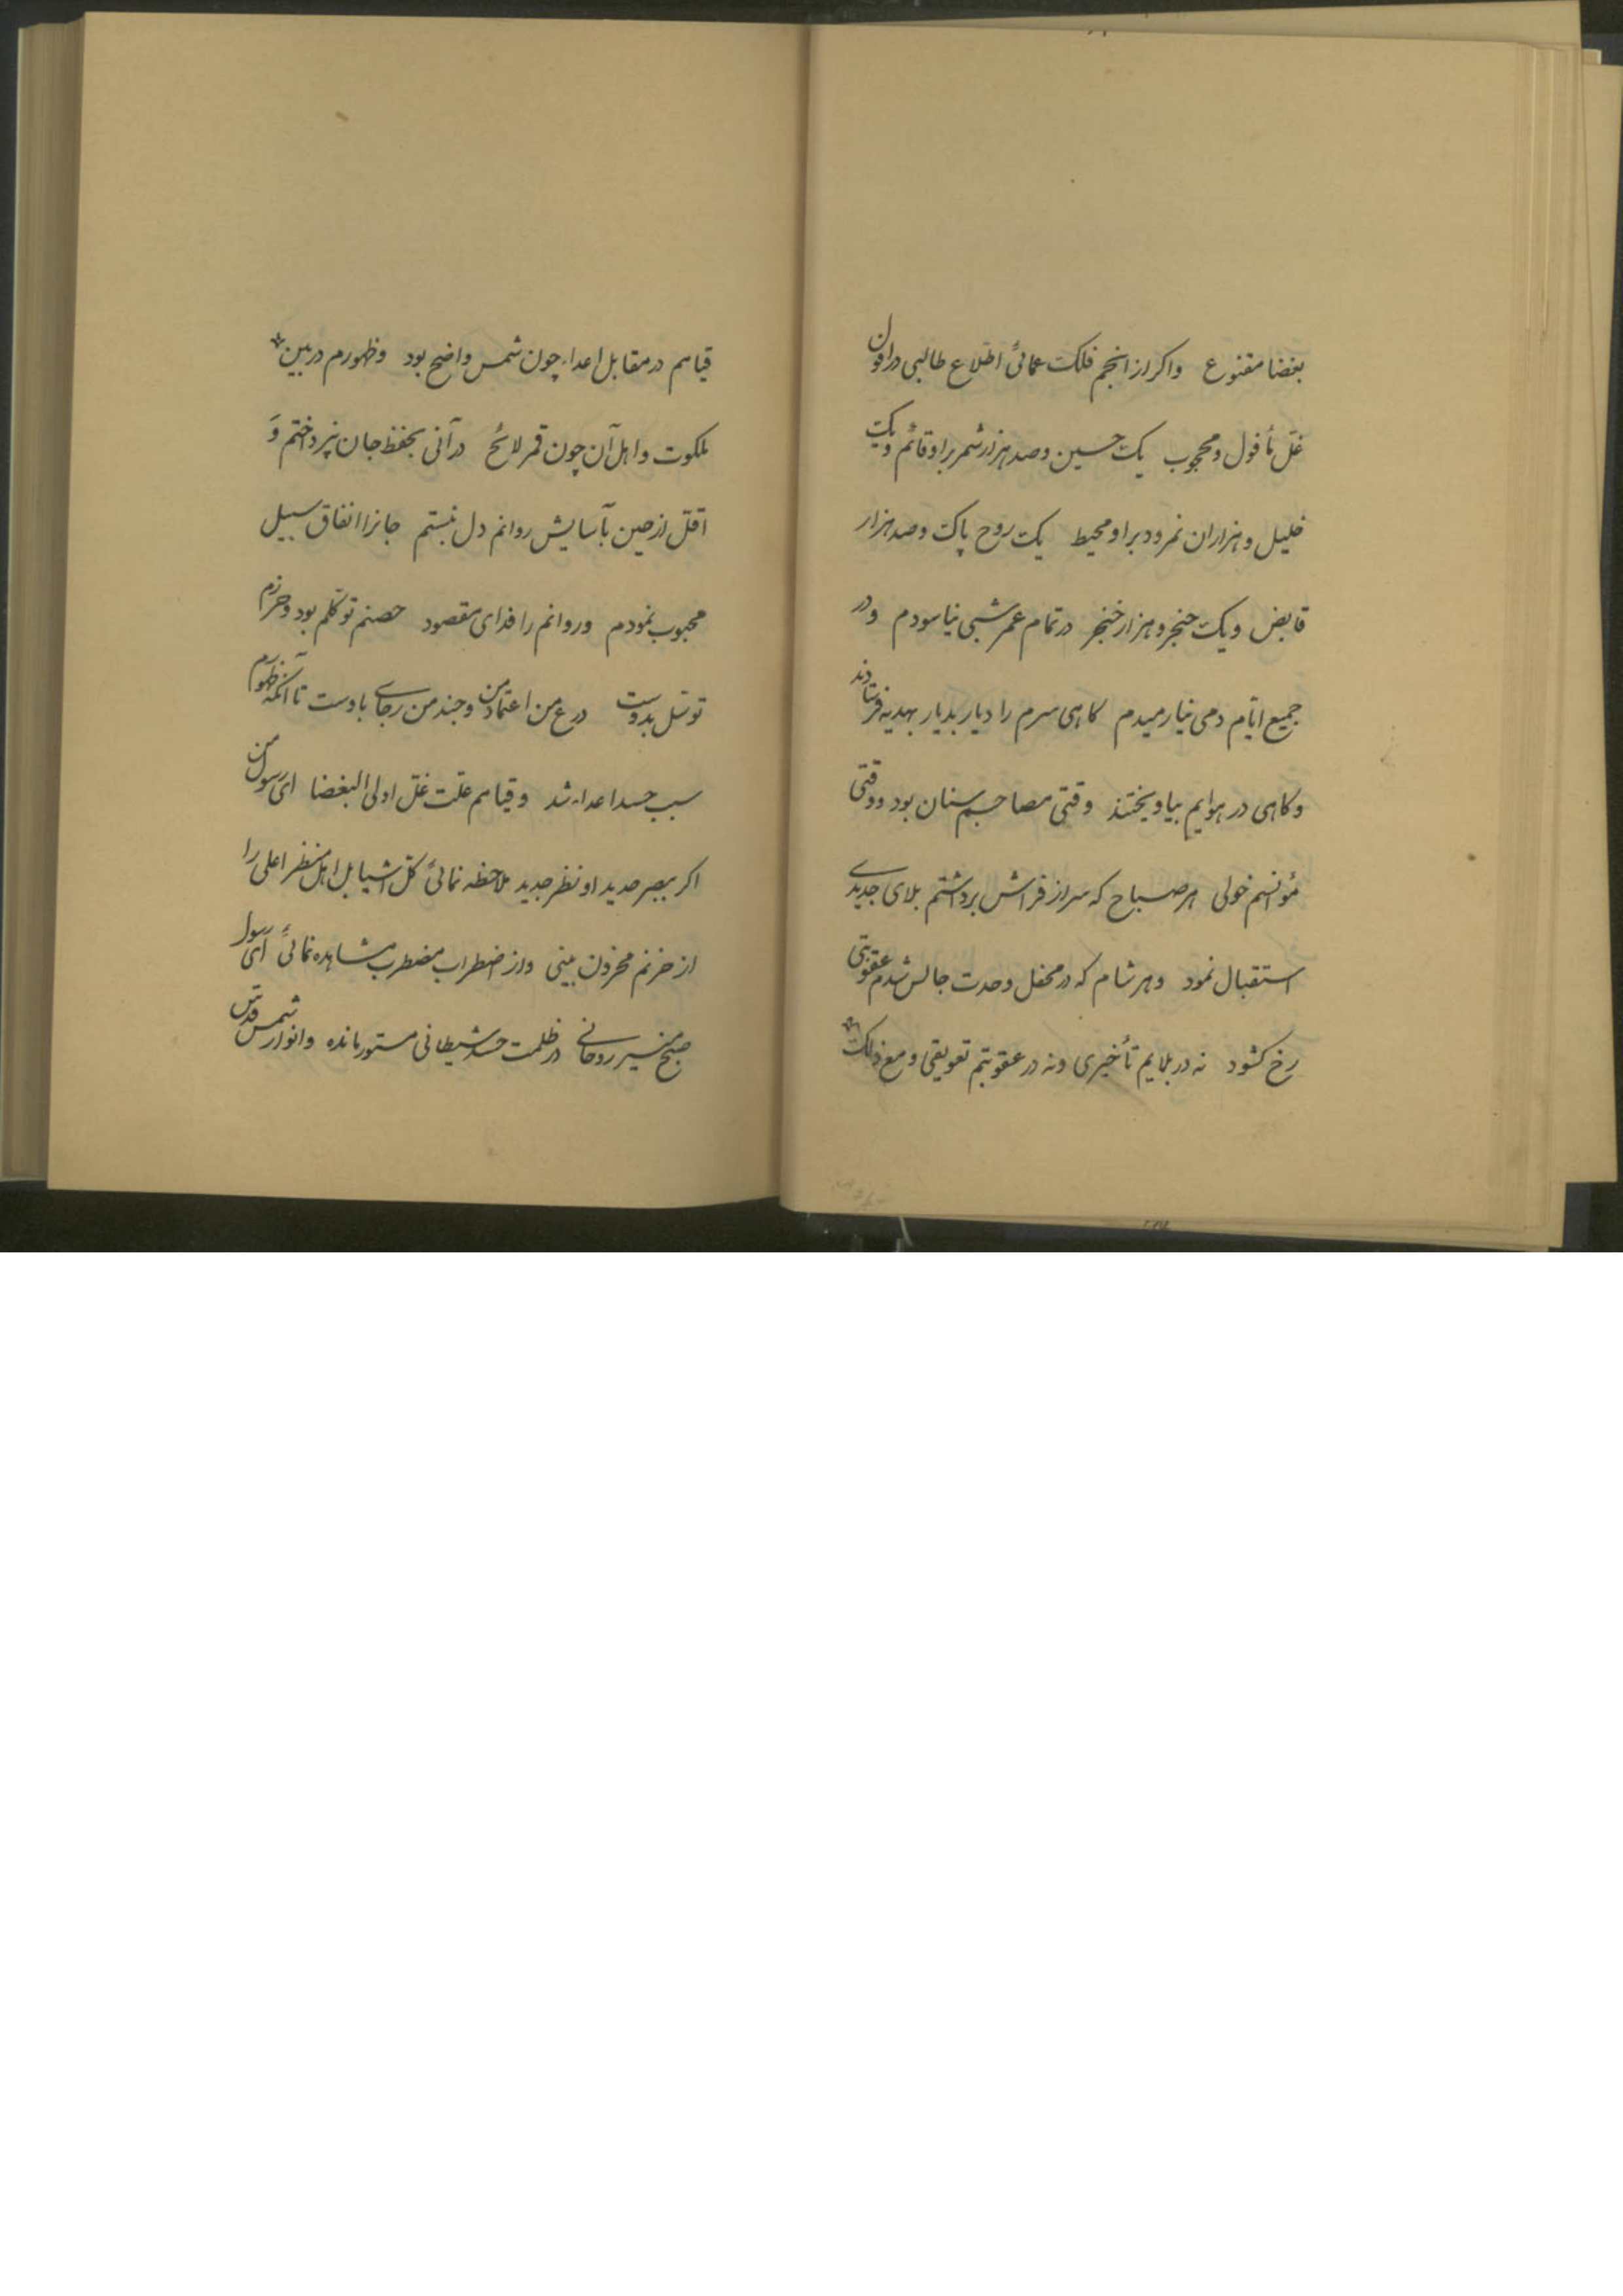 بغضا مقنوع واکر از انجم فلک عمائی اطلاع طالبی در افول
غل مأفول و محجوب یک حسین و صد هزار شمر بر او قائم و یک
خلیل و هزاران نمرود بر او محیط یک روح پاک و صد هزار
قابض و یک حنجر و هزار خنجر در تمام عمر شبی نیاسودم و در
جمیع ایام دمی نیارمیدم کاهی سرم را دیار بدیار بهدیه فرستادند
و کاهی در هوایم بیاویختند وقتی مصاحبم سنان بود و وقتی
مؤانسم خولی هر صباح که سر از فراش برداشتم بلای جدیدی
استقبال نمود و هر شام که در محفل وحدت جالس شدم عقوبتی
رخ کشود نه در بلایم تأخیری و نه در عقوبتم تعویقی و مع ذلک
قیامم در مقابل اعداء چون شمس واضح بود و ظهورم در بین
ملکوت و اهل آن چون قمر لائح در آنی بحفظ جان نپرداختم و
اقل از حین بآسایش روانم دل نبستم جانرا انفاق سبیل
محبوب نمودم و روانم را فدای مقصود حصنم توکلم بود و حرزم
توسل بدوست درع من اعتماد من و جند من رجای باوست تا آنکه ظهورم
سبب حسد اعداء شد و قیامم علت غل اولی البغضا ای رسول من
اکر ببصر حدید او نظر جدید ملاحظه نمائی کل اشیا بل اهل منظر اعلی را
از حزنم محزون بینی و از اضطراب مضطرب مشاهده نمائی ای رسول
صبح منیر روحانی در ظلمت حسد شیطانی مستور مانده و انوار شمس قدس